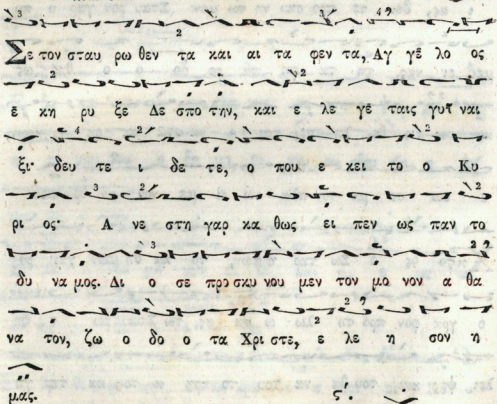 Σε τον σταυ ρω θεν τα και αι τα φεν τα, Αγ γε λο ος
ε κη ρυ ξε Δε σπο την, και ε λε γε ταις γυ ναι
ξι· δευ τε ι δε τε, ο που ε κει το ο Κυ
ρι ος· Α νε στη γαρ κα θως ει πεν ως παν το
δυ να μος. Δι ο σε προ σκυ νου μεν τον μο νον α θα
να τον, ζω ο δο ο τα Χρι στε, ε λε η σον η
μας. ς΄.